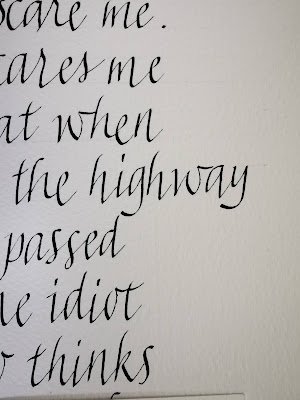 scare me.
cares me
at when
the highway
passed
ne idiot
thinks